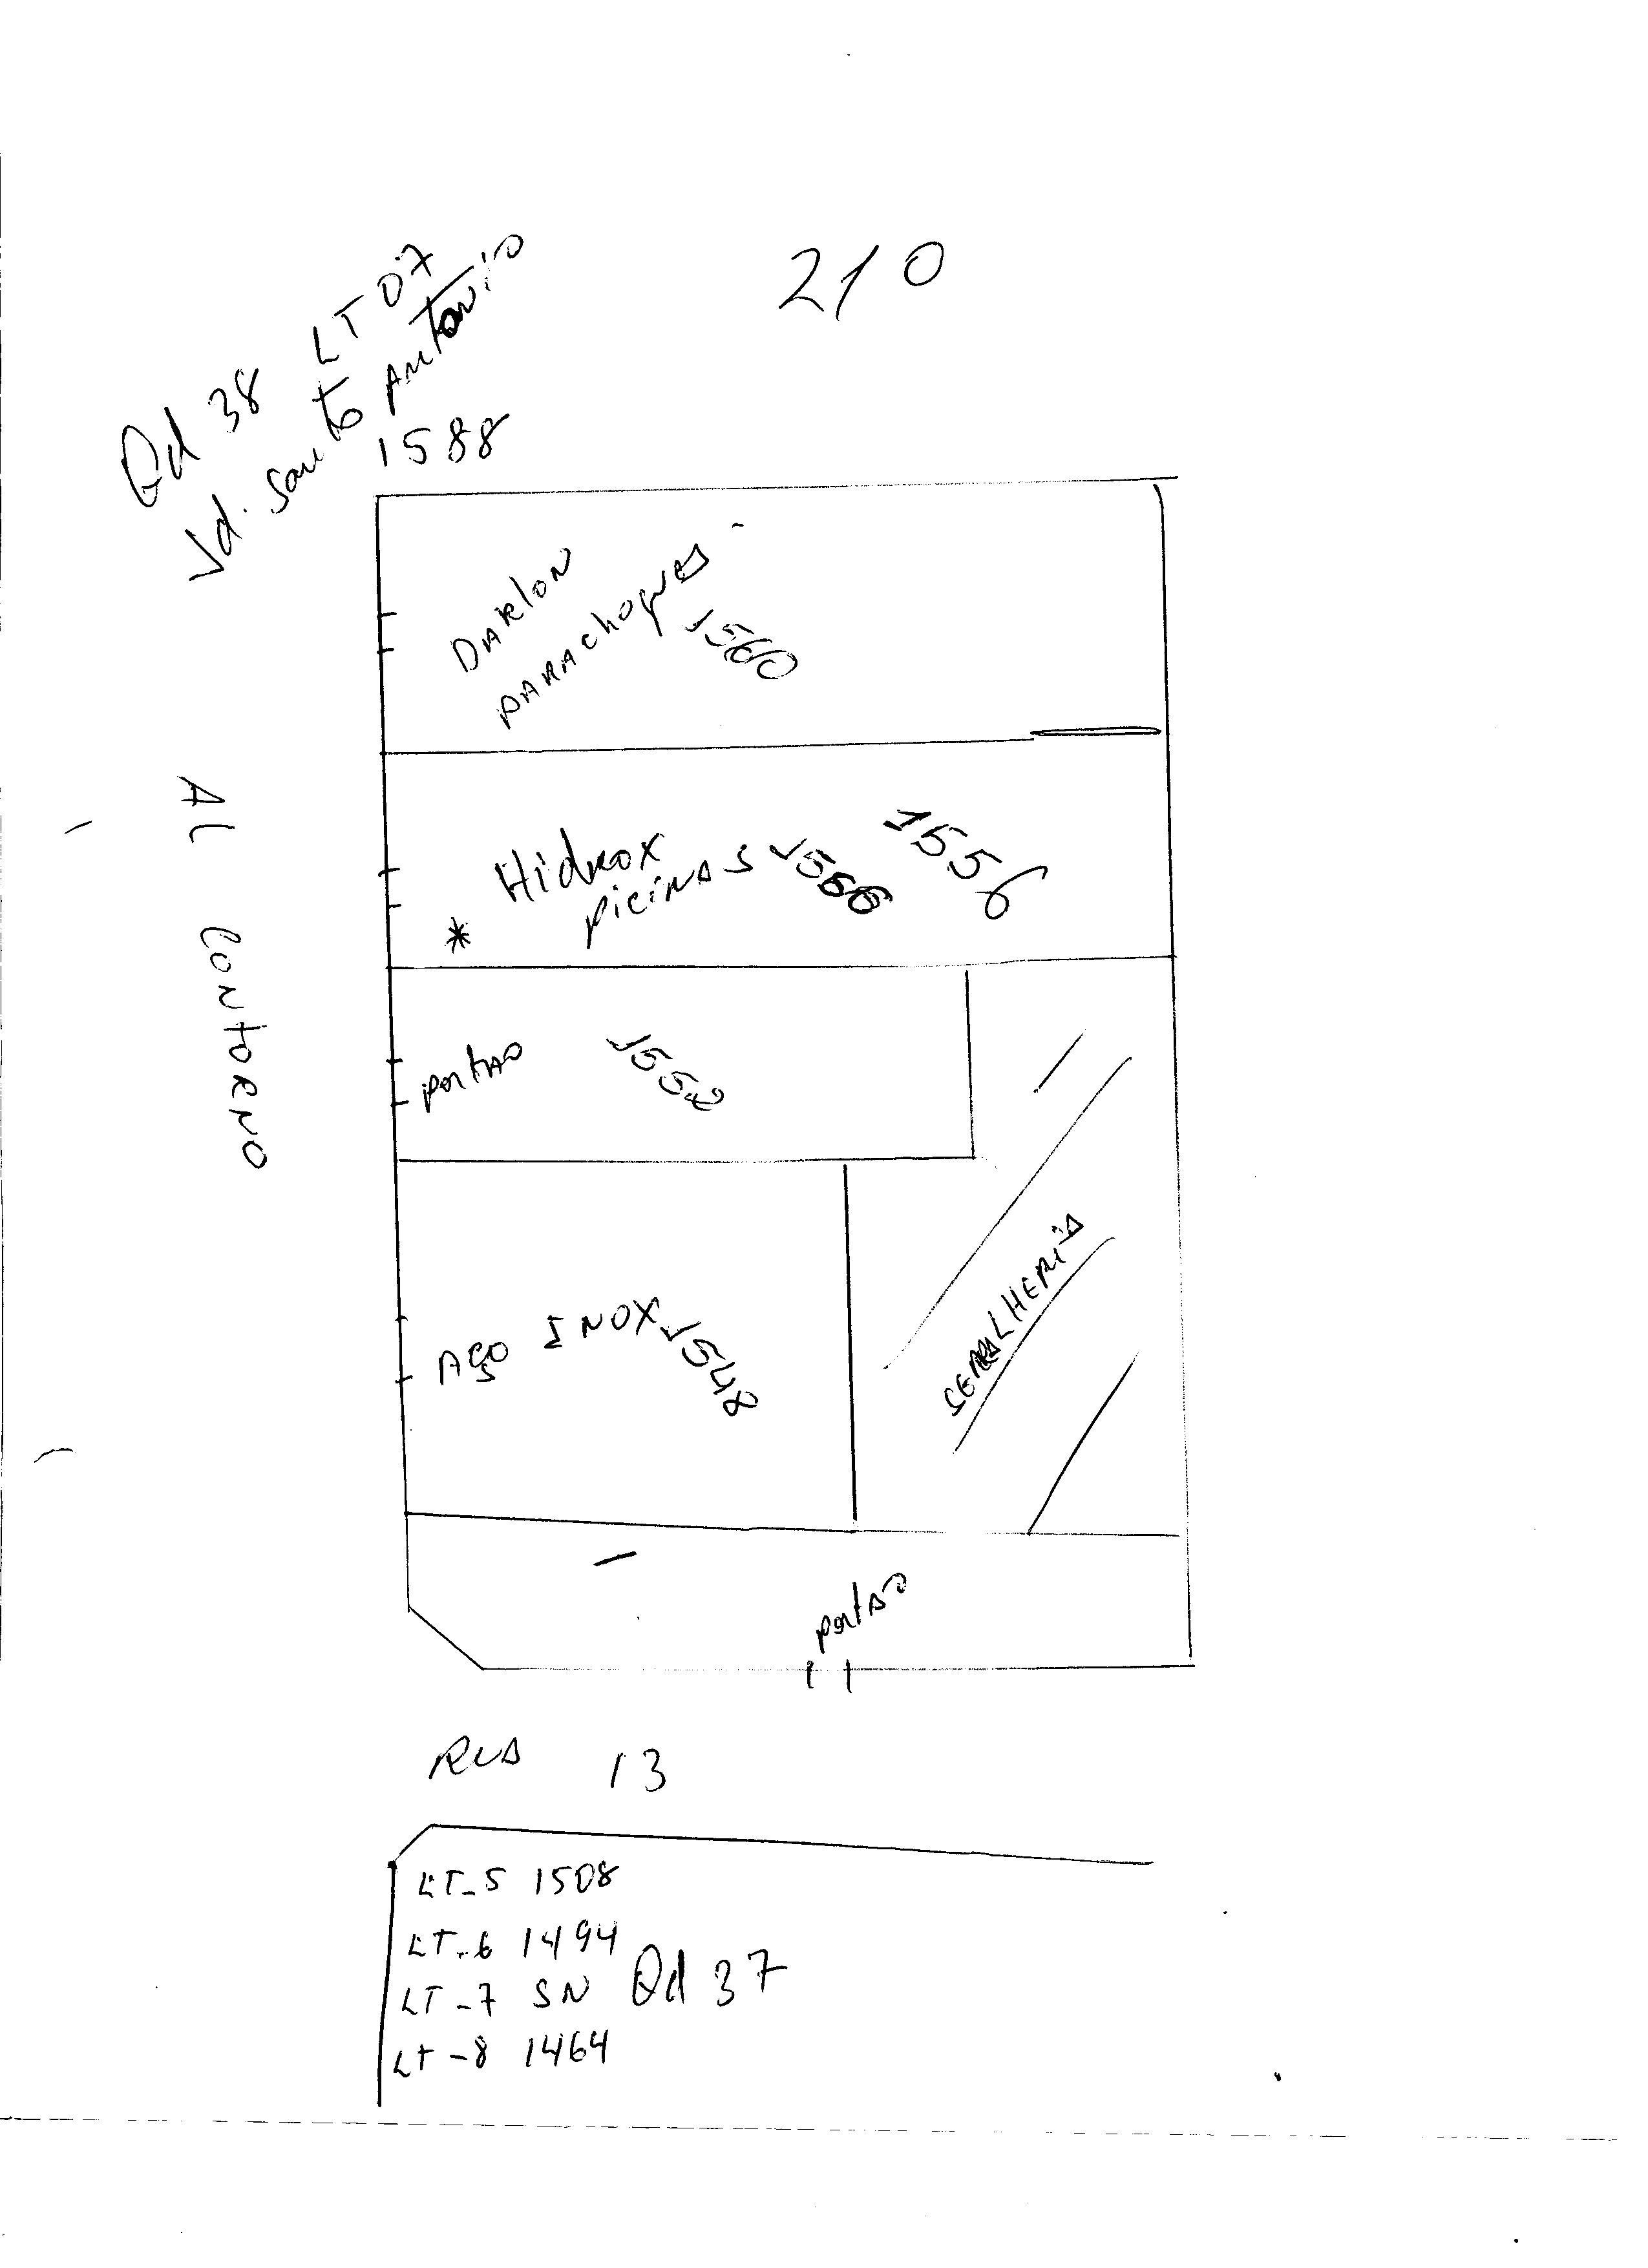 210
Qd 38 LT 07
Jd. Santo Antonio
1588
DARlON
PARAchoques
1560
Hidrox
picinas 1566
1556
*
Al CONTORNO
portao
1552
AÇO INOX 1548
SERRALHERIA
portao
RUA 13
LT-5 1508
LT-6 1494
LT-7 SN
Qd 37
LT-8 1464